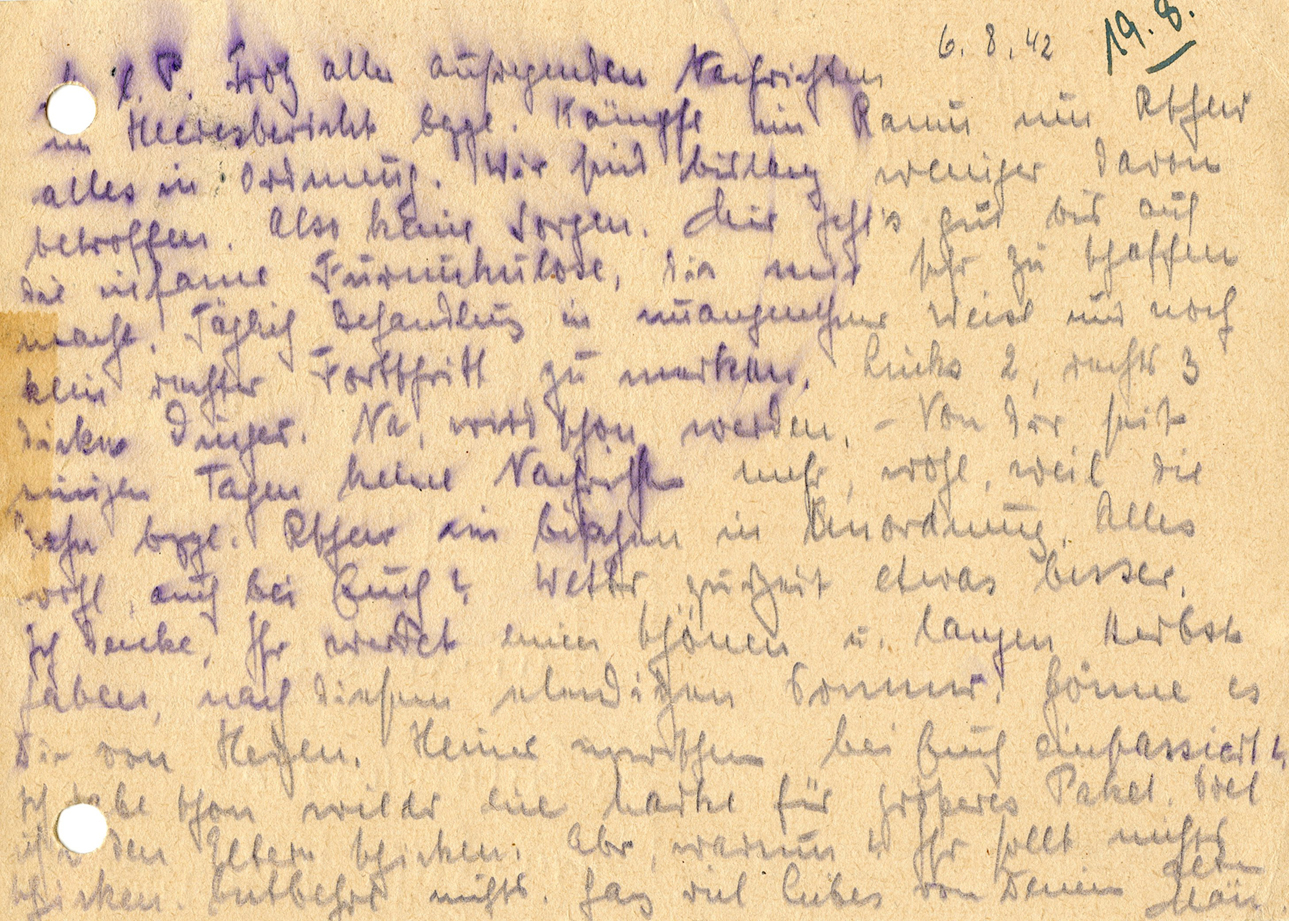 6.8.42 19.8.
M. l. P. Trotz aller aufregenden Nachrichten
im Heeresbericht bzgl. Kämpfe im Raum um Rshew
alles in Ordnung. Wir sind bislang weniger davon
betroffen. Also keine Sorgen. Mir geht's gut bis auf
die infame Furunkulose, die mir sehr zu schaffen
macht. Täglich Behandlung in unangenehmer Weise und noch
kein rechter Fortschritt zu merken. Links 2, rechts 3
dicke Dinger. Na, wird schon werden. – Von Dir seit
einigen Tagen keine Nachricht mehr, wohl, weil die
Bahn bzgl. Rshew ein bischen in Unordnung. Alles
wohl, auch bei Euch? Wetter zurzeit etwas besser.
Ich denke, Ihr werdet einen schönen u. langen Herbst
haben, nach diesem elendigen Sommer. Gönne es
Dir von Herzen. Heiner inzwischen bei Euch einpassiert?
Ich habe schon wieder eine Marke für größeres Paket. Soll
ich's den Eltern schicken. Aber, warum? Ihr sollt nichts
schicken. Entbehre nichts. Ganz viel Liebes von Deinem